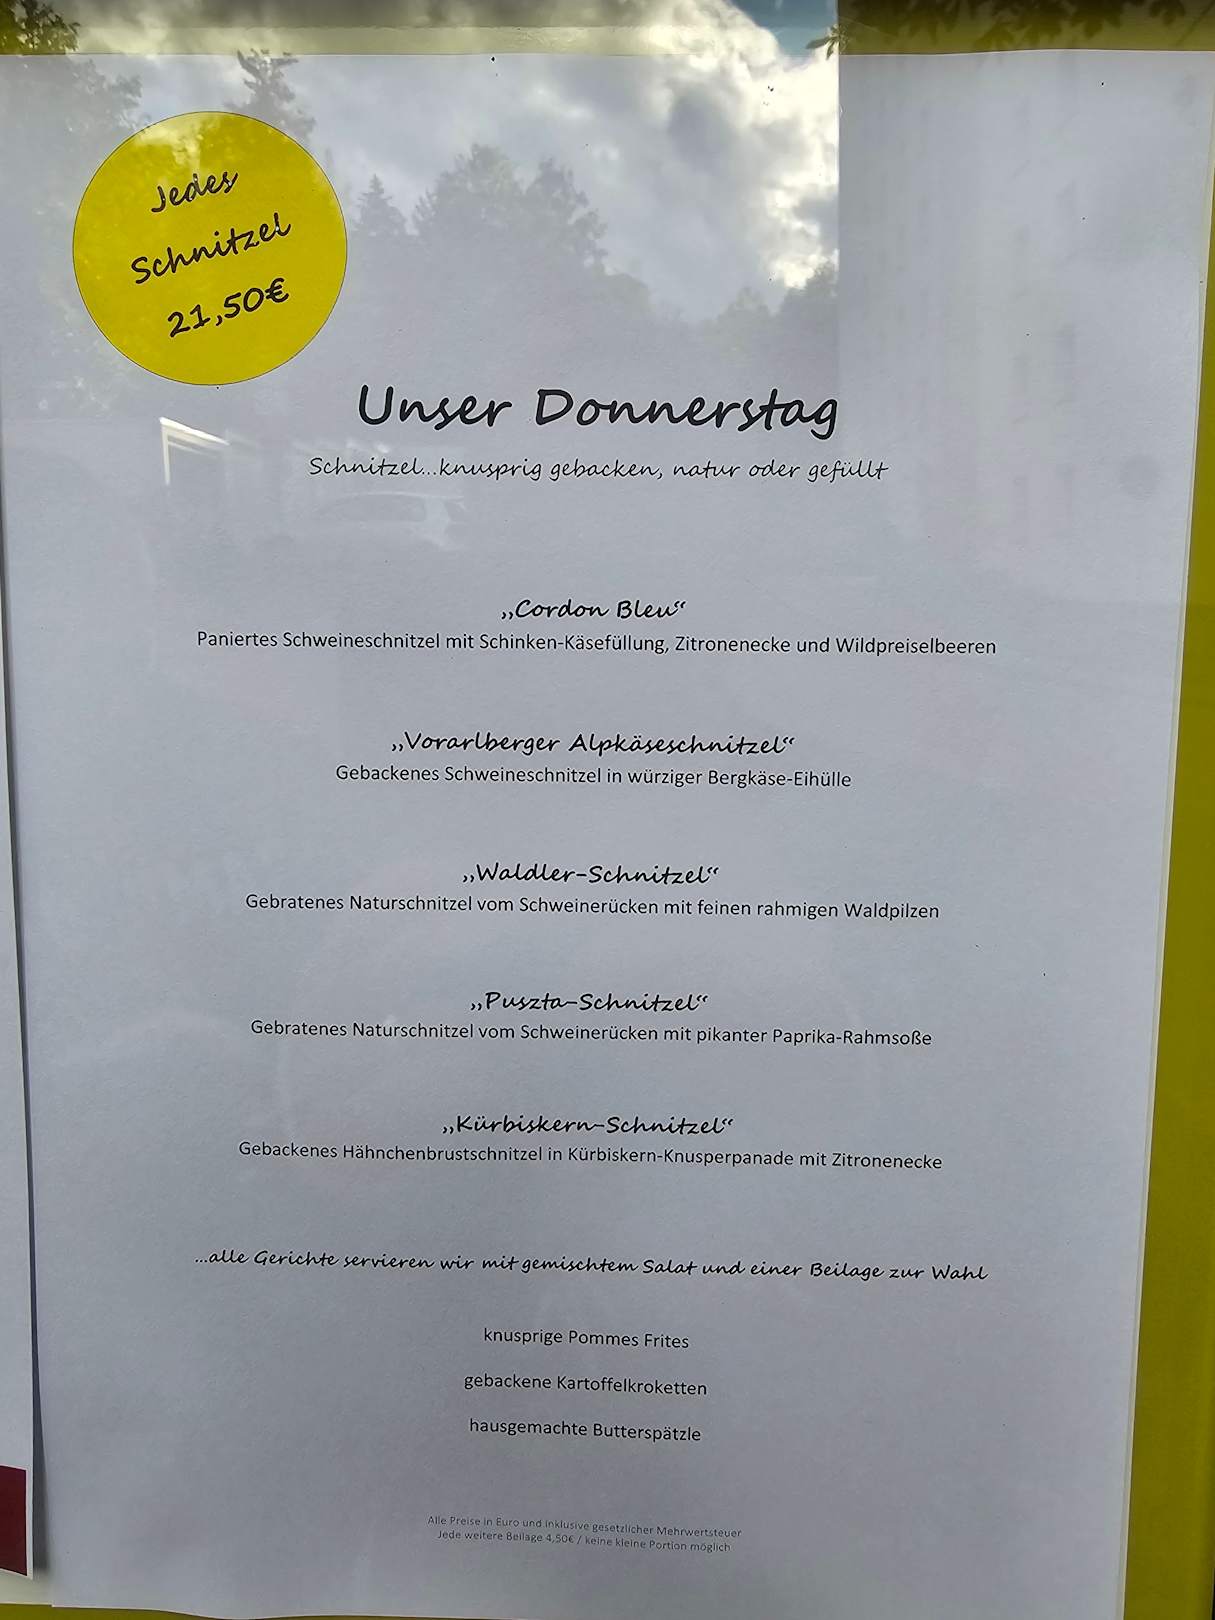 Jedes
Schnitzel
21,50€
Unser Donnerstag
Schnitzel...knusprig gebacken, natur oder gefüllt
„Cordon Bleu“
Paniertes Schweineschnitzel mit Schinken-Käsefüllung, Zitronenecke und Wildpreiselbeeren
„Vorarlberger Alpkäseschnitzel“
Gebackenes Schweineschnitzel in würziger Bergkäse-Eihülle
„Waldler-Schnitzel“
Gebratenes Naturschnitzel vom Schweinerücken mit feinen rahmigen Waldpilzen
„Puszta-Schnitzel“
Gebratenes Naturschnitzel vom Schweinerücken mit pikanter Paprika-Rahmsoße
„Kürbiskern-Schnitzel“
Gebackenes Hähnchenbrustschnitzel in Kürbiskern-Knusperpanade mit Zitronenecke
...alle Gerichte servieren wir mit gemischtem Salat und einer Beilage zur Wahl
knusprige Pommes Frites
gebackene Kartoffelkroketten
hausgemachte Butterspätzle
Alle Preise in Euro und inklusive gesetzlicher Mehrwertsteuer
Jede weitere Beilage 4,50€ / keine kleine Portion möglich